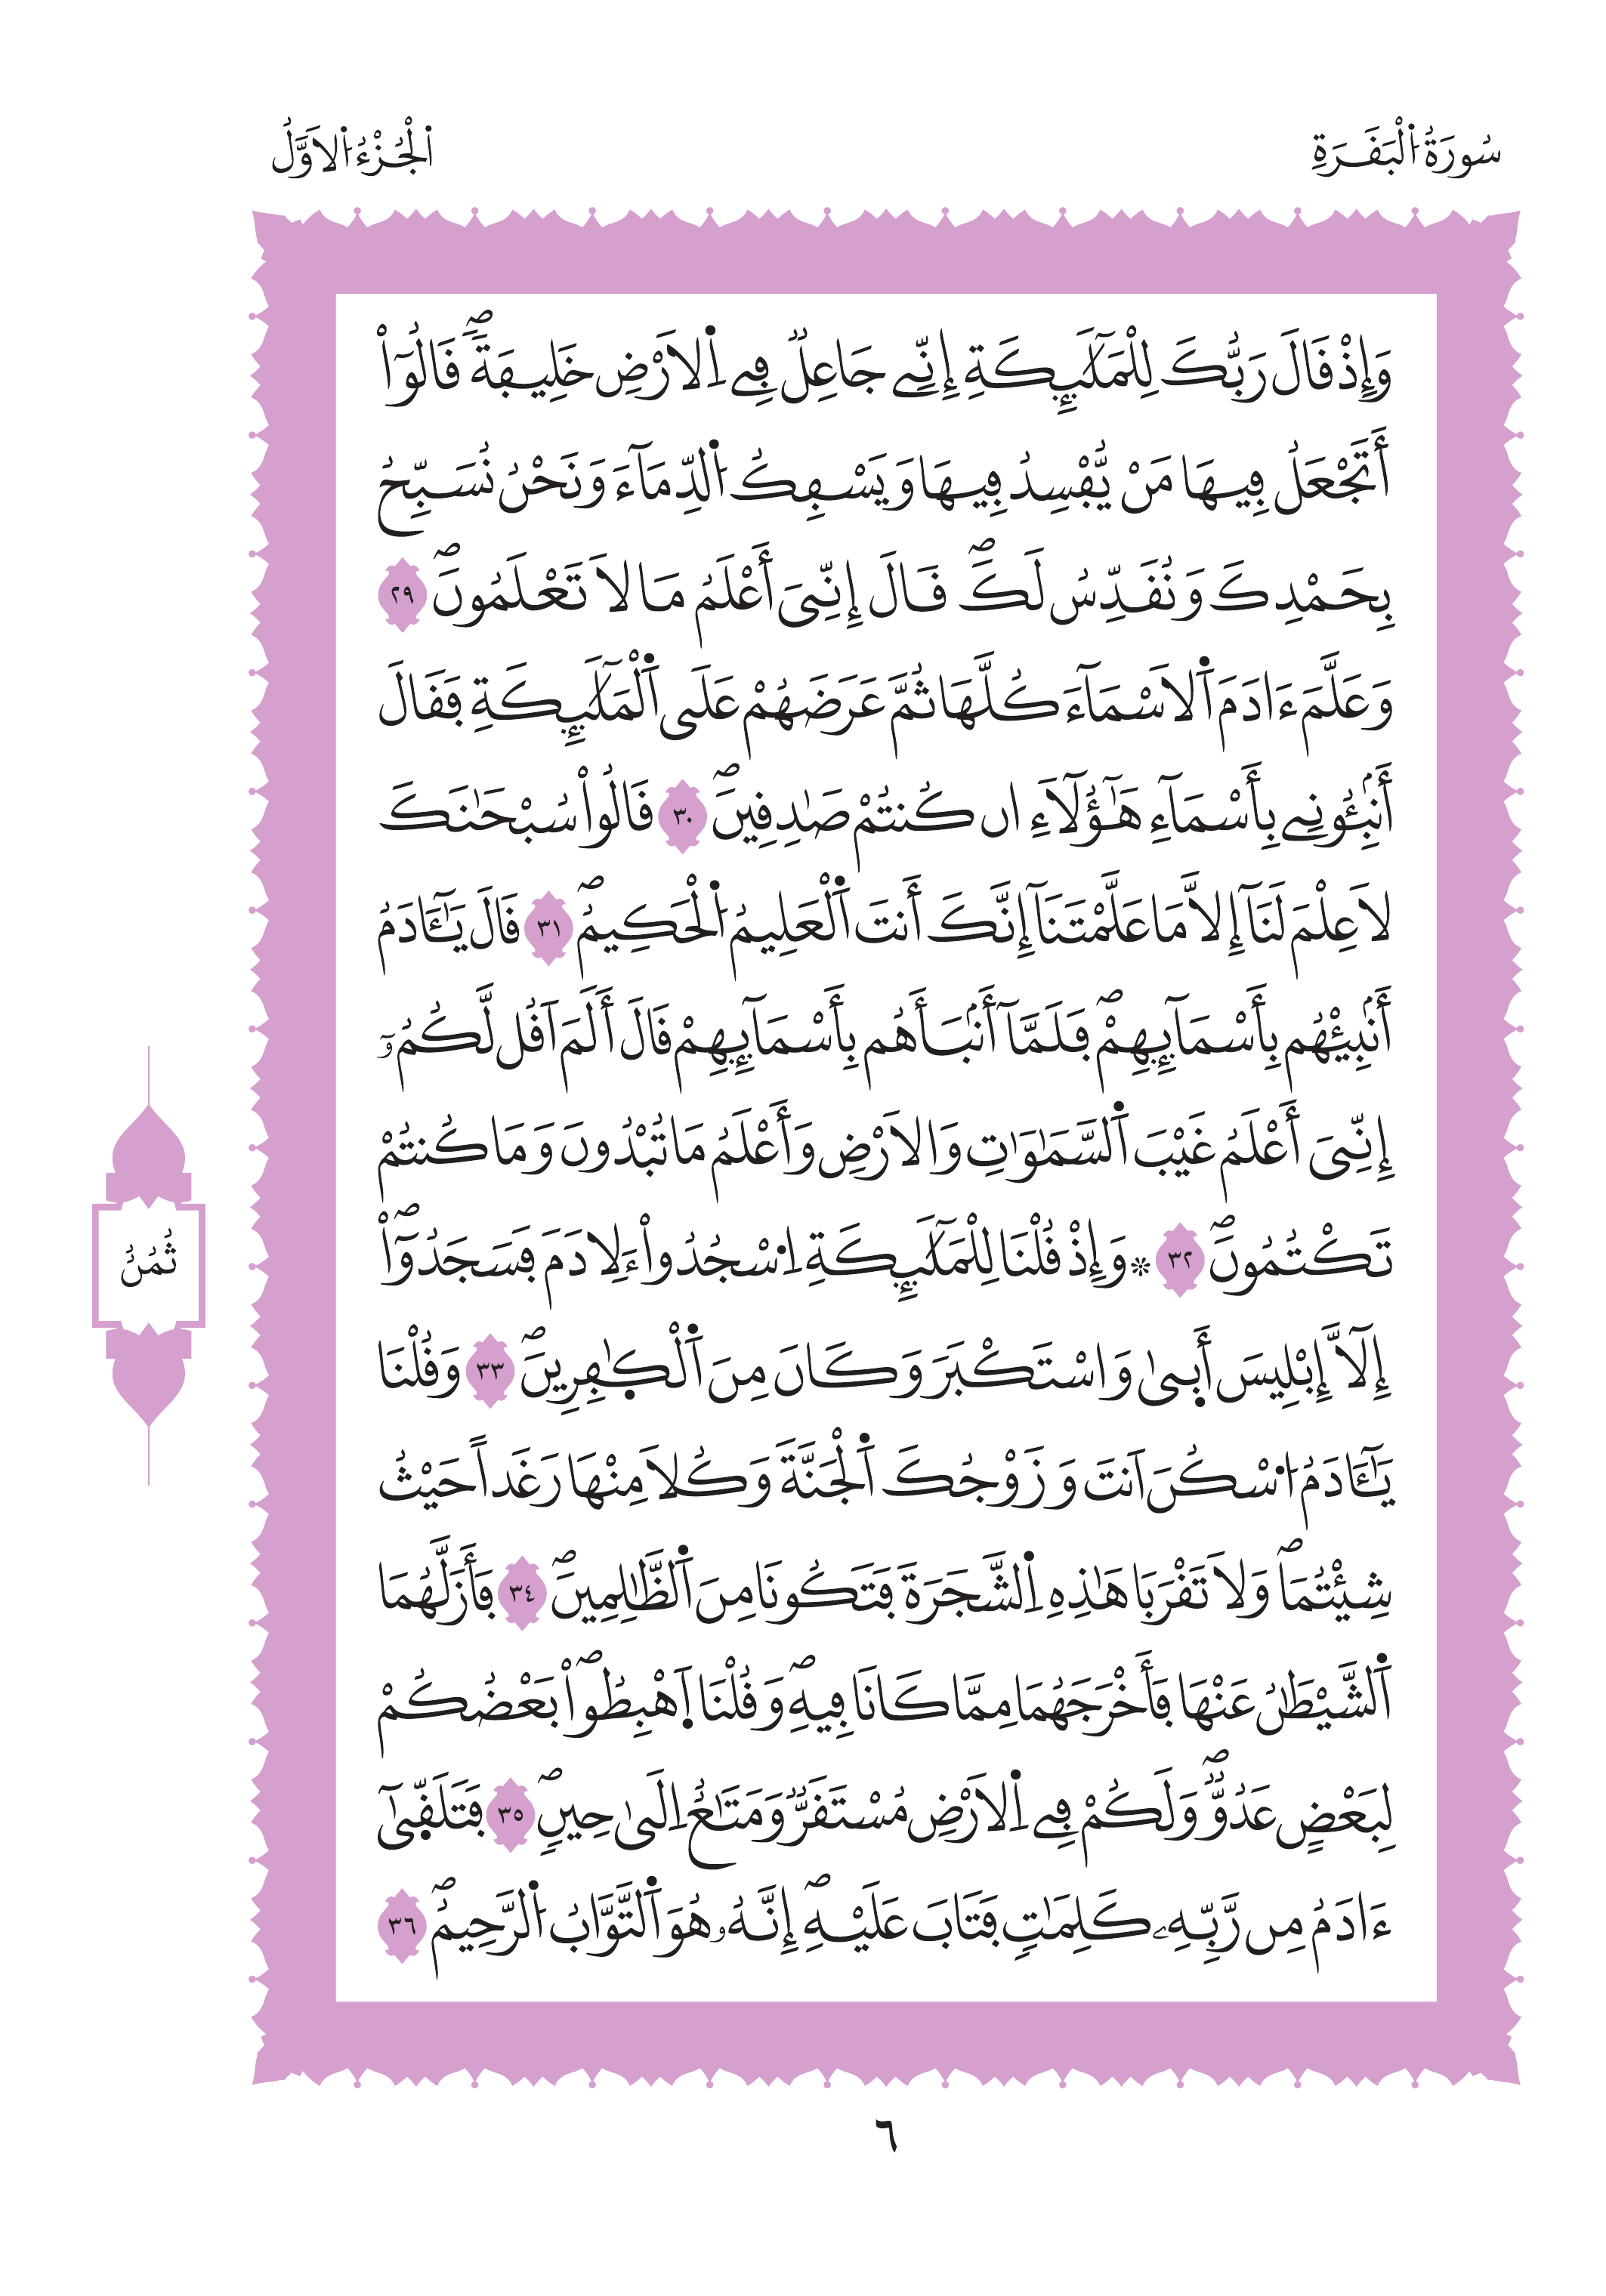 سُورَةُ اُ۬لْبَقَرَةِ
اَ۬لْجُزْءُ اُ۬لَاوَّلُ
وَإِذْ قَالَ رَبُّكَ لِلْمَلَٰٓئِكَةِ إِنِّے جَاعِلٞ فِے اِ۬لَارْضِ خَلِيفَةٗۖ قَالُوٓاْ
أَتَجْعَلُ فِيهَا مَنْ يُّفْسِدُ فِيهَا وَيَسْفِكُ اُ۬لدِّمَآءَ وَنَحْنُ نُسَبِّحُ
بِحَمْدِكَ وَنُقَدِّسُ لَكَۖ قَالَ إِنِّيَ أَعْلَمُ مَا لَا تَعْلَمُونَۖ ٢٩
وَعَلَّمَ ءَادَمَ اَ۬لَاسْمَآءَ كُلَّهَا ثُمَّ عَرَضَهُمْ عَلَى اَ۬لْمَلَٰٓئِكَةِ فَقَالَ
أَنۢبِـُٔونِے بِأَسْمَآءِ هَٰٓؤُلَآءِ ان كُنتُمْ صَٰدِقِينَۖ ٣٠ قَالُواْ سُبْحَٰنَكَ
لَا عِلْمَ لَنَآ إِلَّا مَا عَلَّمْتَنَآ إِنَّكَ أَنتَ اَ۬لْعَلِيمُ اُ۬لْحَكِيمُۖ ٣١ قَالَ يَٰٓـَٔادَمُ
أَنۢبِئْهُم بِأَسْمَآئِهِمْۖ فَلَمَّآ أَنۢبَأَهُم بِأَسْمَآئِهِمْ قَالَ أَلَمَ اَقُل لَّكُمُۥٓ
إِنِّيَ أَعْلَمُ غَيْبَ اَ۬لسَّمَٰوَٰتِ وَالَارْضِ وَأَعْلَمُ مَا تُبْدُونَ وَمَا كُنتُمْ
تَكْتُمُونَۖ ٣٢ ۞ وَإِذْ قُلْنَا لِلْمَلَٰٓئِكَةِ اِ۟سْجُدُواْ لِأٓدَمَ فَسَجَدُوٓاْۖ
ثُمُنُ
إِلَّآ إِبْلِيسَ أَب۪ىٰ وَاسْتَكْبَرَ وَكَانَ مِنَ اَ۬لْكٰ۪فِرِينَۖ ٣٣ وَقُلْنَا
يَٰٓـَٔادَمُ اُ۟سْكُنَ اَنتَ وَزَوْجُكَ اَ۬لْجَنَّةَ وَكُلَا مِنْهَا رَغَداً حَيْثُ
شِئْتُمَاۖ وَلَا تَقْرَبَا هَٰذِهِ اِ۬لشَّجَرَةَ فَتَكُونَا مِنَ اَ۬لظَّٰلِمِينَۖ ٣٤ فَأَزَلَّهُمَا
اَ۬لشَّيْطَٰنُ عَنْهَا فَأَخْرَجَهُمَا مِمَّا كَانَا فِيهِۖ وَقُلْنَا اَ۪هْبِطُواْۖ بَعْضُكُمْ
لِبَعْضٍ عَدُوّٞۖ وَلَكُمْ فِے اِ۬لَارْضِ مُسْتَقَرّٞ وَمَتَٰعٌ اِلَىٰ حِينٖۖ ٣٥ فَتَلَقّ۪ىٰٓ
ءَادَمُ مِن رَّبِّهِۦ كَلِمَٰتٖ فَتَابَ عَلَيْهِۖ إِنَّهُۥ هُوَ اَ۬لتَّوَّابُ اُ۬لرَّحِيمُۖ ٣٦
٦